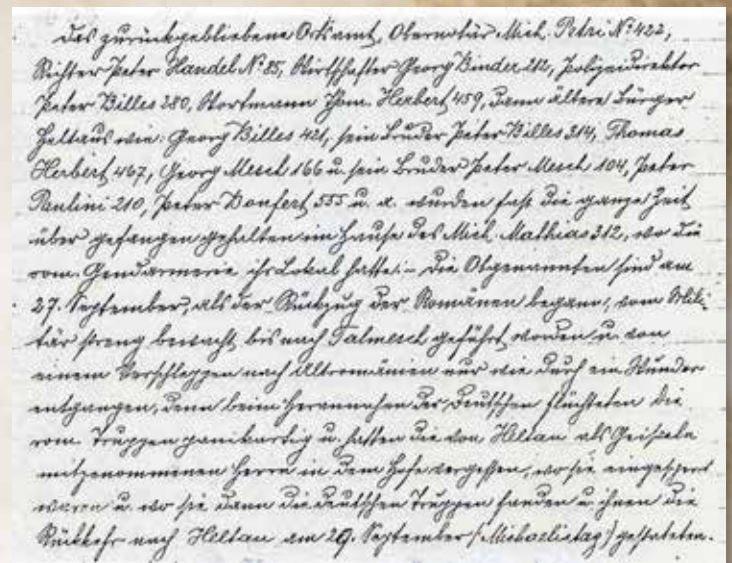 Das zurückgebliebene Ortsamt, Obernotär Mich. Petri N° 422,
Richter Peter Handel N° 85, Wirtschafter Georg Binder 212, Polizeidirektor
Peter Billes 280, Wortmann Thom. Herbert 459, dann ältere Bürger
Heltaus wie: Georg Billes 421, sein Bruder Peter Billes 314, Thomas
Herbert 467, Georg Mesch 166 u. sein Bruder Peter Mesch 104, Peter
Paulini 210, Peter Bonfert 555 u. a. wurden fast die ganze Zeit
über gefangen gehalten im Hause des Mich. Mathias 312, wo die
rom. Gendarmerie ihr Lokal hatte. – Die Obgenannten sind am
27. September, als der Rückzug der Romänen begann, vom Mili-
tär streng bewacht, bis nach Talmesch geführt worden u. von
einem Verschleppen nach Altromänien nur wie durch ein Wunder
entgangen, denn beim Herannahen der Deutschen flüchteten die
rom. Truppen panikartig u. hatten die von Heltau als Geiseln
mitgenommenen Herrn in dem Hofe vergessen, wo sie eingesperrt
waren u. wo sie dann die deutschen Truppen fanden u. ihnen die
Rückkehr nach Heltau am 29. September (Michaelistag) gestateten.